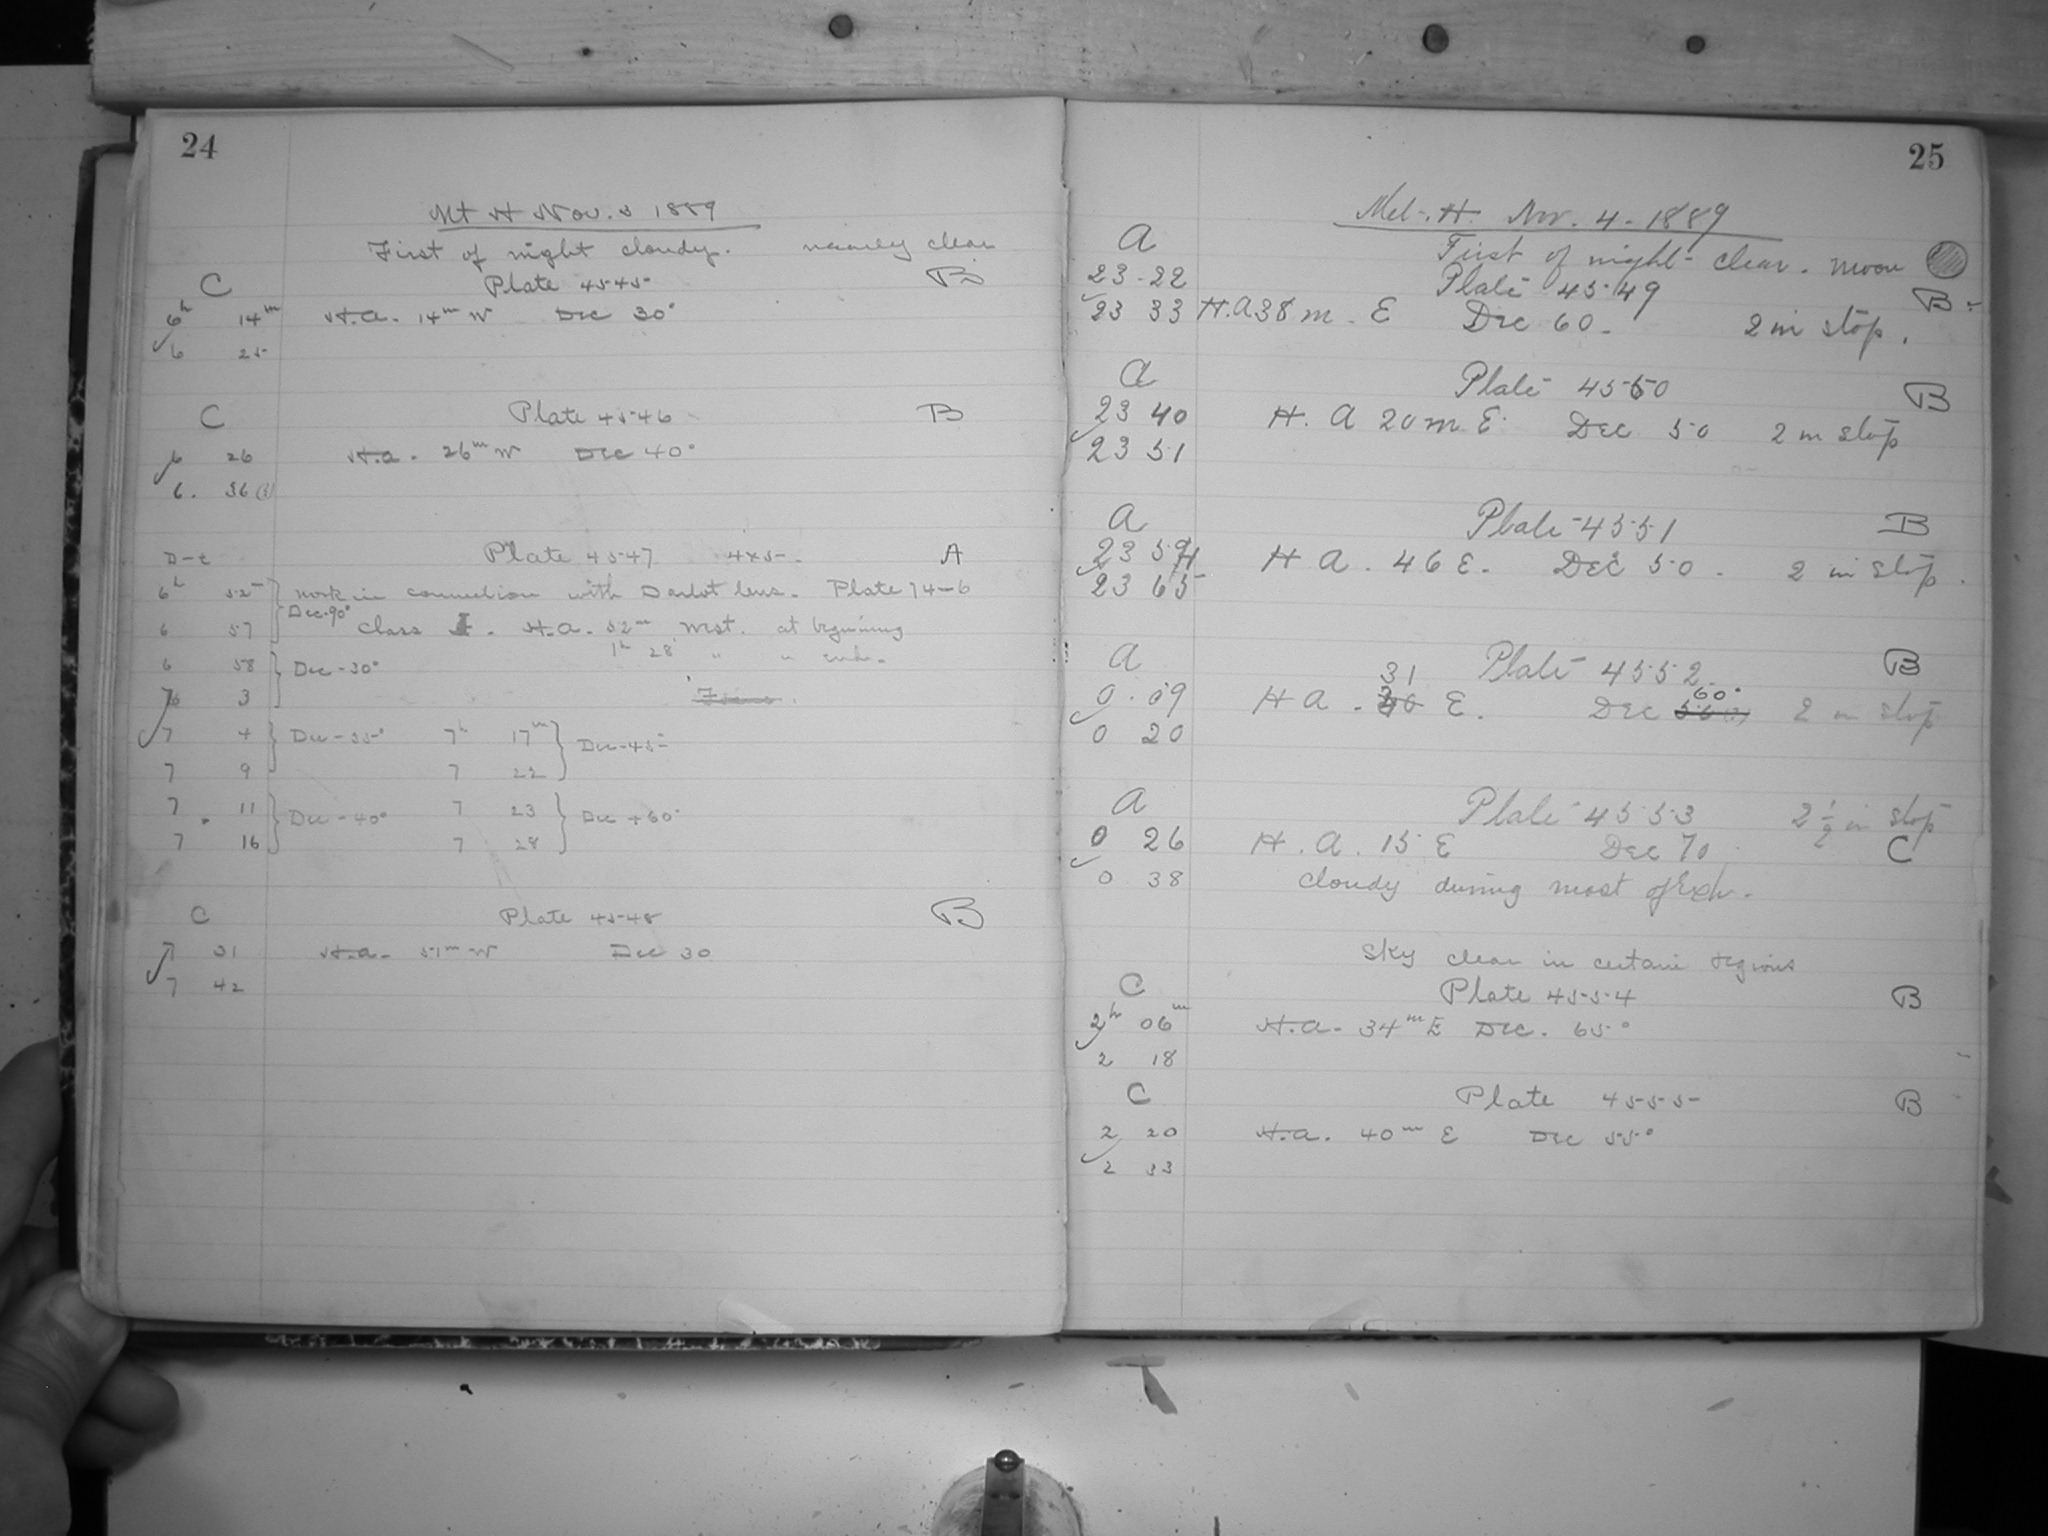 24
Mt H Nov. 3 1889
First of night cloudy. mainly clear
C Plate 4545 B
6h 14m H.A. 14m W Dec 30°
6 25
C Plate 4546 B
6 26 H.a. 26m W Dec 40°
6. 36(?)
D-c Plate 4547 4x5. A
6h 52 work in connection with Darlot lens. Plate 74-6
Dec-90°
6 57 Class I. H.a. 52m West. at beginning
1h 28 " " end.
6 58 Dec -30°
7 3
7 4 Dec -35° 7h 17m Dec -45
7 9 7 22
7 11 Dec -40° 7 23 Dec +60°
7 16 7 28
C Plate 4548 B
7 31 H.a. 51m W Dec 30
7 42
25
Mel-.H. Nov. 4-1889
A First of night clear. moon
23-22 Plate 4549 B
23 33 H.A 38 m. E Dec 60. 2 in stop.
a Plate 4550 B
23 40 H. A 20 m E. Dec 50 2 in stop
23 51
a Plate 4551 B
23 54 H A. 46 E. Dec 50. 2 in stop.
23 65
a Plate 4552 B
31 60°
0.09 H A. E. Dec 2 in stop
0 20
a Plate 4553 2 1/2 in stop
0 26 H. A. 15 E Dec 70 C
0 38 cloudy during most of Exp.
Sky clear in certain regions
C Plate 4554 B
2h 06m H.a. 34m E Dec. 65°
2 18
C Plate 4555 B
2 20 H.a. 40m E Dec 55°
2 33